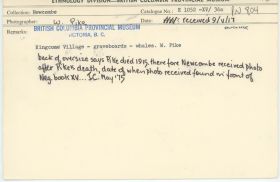 ETHNOLOGY DIVISION—BRITISH COLUMBIA PROVINCIAL MUSEUM
Collection: Newcombe Catalogue No. E 1050 -XV/ 36a PN 904
Photographer: W. Pike Date: received 9/1/17
BRITISH COLUMBIA PROVINCIAL MUSEUM
VICTORIA, B. C.
Kingcome Village - graveboards - whales. W. Pike
back of oversize says Pike died 1915, therefore Newcombe received photo
after Pike's death, date of when photo received found in front of
Neg. book XV... J.C. May '75